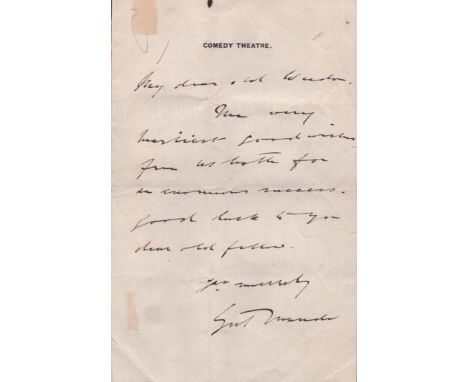 COMEDY THEATRE.
My dear old Weedon.
The very
heartiest good wishes
from us both for
an enormous success.
Good luck to you
dear old fellow.
Yrs